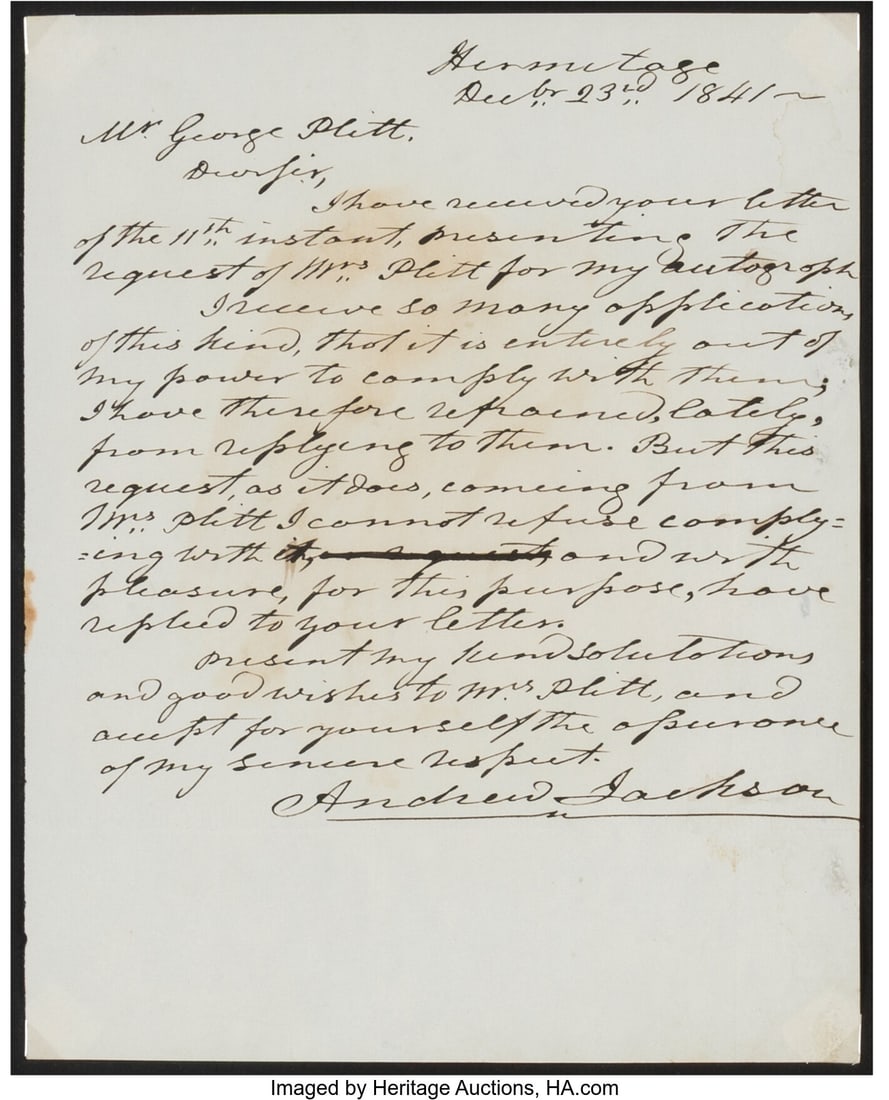 Hermitage
Decbr 23rd 1841~
Mr George Plitt.
Dear Sir,
I have received your letter
of the 11th instant, presenting the
request of Mrs Plitt for my autograph
I receive so many applications
of this kind, that it is entirely out of
my power to comply with them;
I have therefore refrained, lately,
from replying to them. But this
request, as it does, comeing from
Mrs Plitt I cannot refuse comply=
=ing with it, and with
pleasure, for this purpose, have
replied to your letter.
present my kind salutations
and good wishes to Mrs Plitt, and
accept for yourself the assurance
of my sincere respect.
Andrew Jackson
Imaged by Heritage Auctions, HA.com